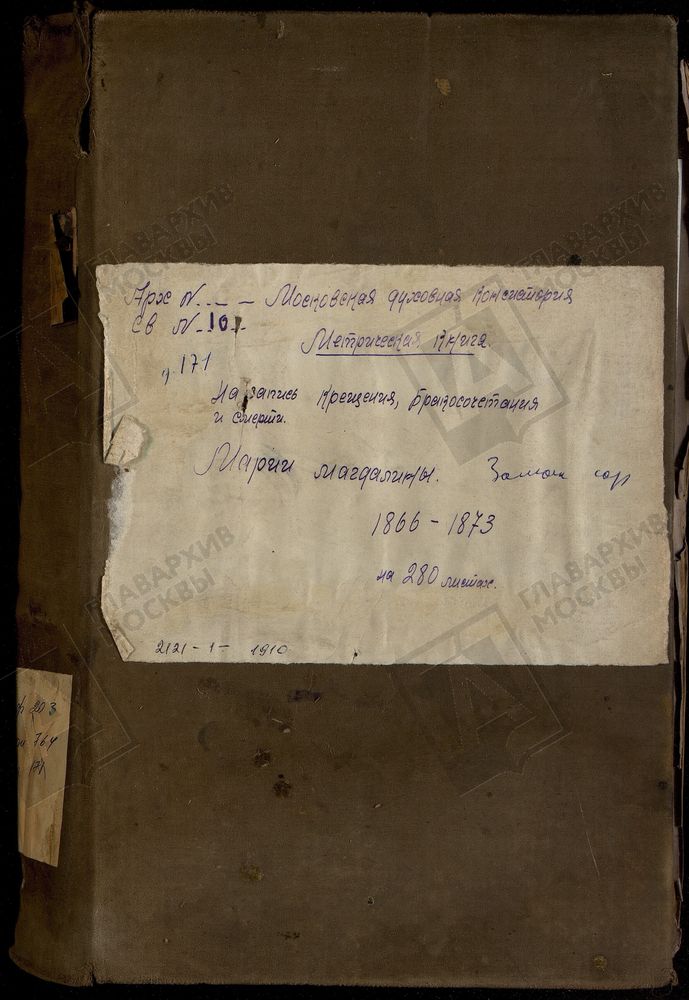 Арх № --- – Московская духовная консистория
Св № 10 -
Метрическая книга.
д. 171
На запись крещения, бракосочетания
и смерти.
Марии Магдалины.
1866 – 1873
на 280 листах.
2121 – 1 – 1910
203
764
171
ГЛАВАРХИВ
МОСКВЫ
ГЛАВАРХИВ
МОСКВЫ
ГЛАВАРХИВ
МОСКВЫ
ГЛАВАРХИВ
МОСКВЫ